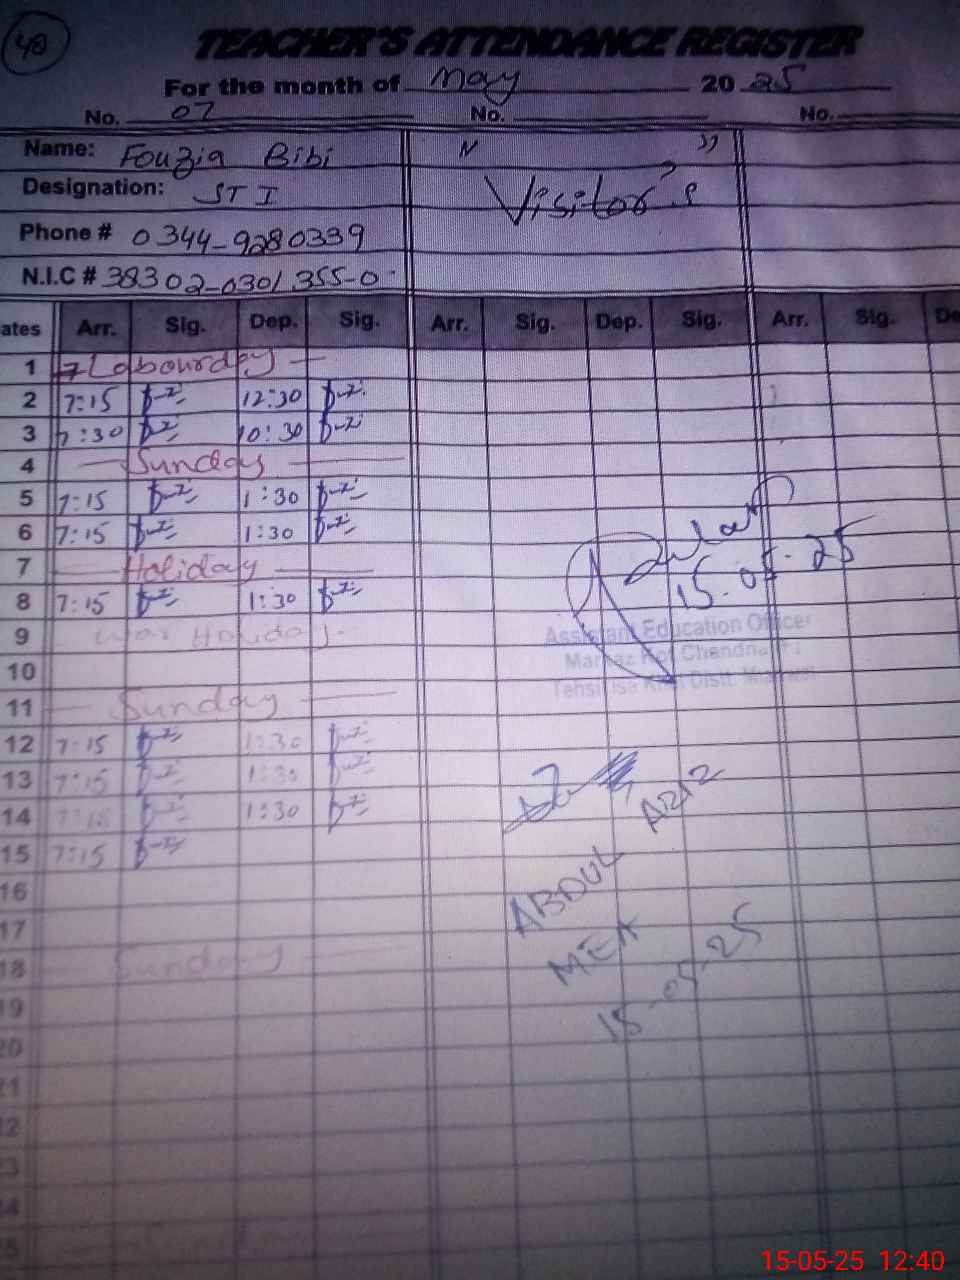 48
TEACHER'S ATTENDANCE REGISTER
For the month of May 2025
No. 07 No. No.
Name: Fouzia Bibi
Designation: STI
Phone # 0344-9280339
N.I.C # 38302-0301355-0
" Visitor's "
ates Arr. Sig. Dep. Sig. Arr. Sig. Dep. Sig. Arr. Sig. De
1 Labourday
2 7:15 12:30
3 7:30 10:30
4 Sunday
5 7:15 1:30
6 7:15 1:30
7 Holiday
8 7:15 1:30
9 War Holiday
10
11 Sunday
12 7:15 1:30
13 7:15 1:30
14 7:15 1:30
15 7:15
16
17
18 Sunday
19
20
21
22
23
24
25
15.05.25
Assistant Education Officer
Markaz Kot Chandna
Tehsil Isa Khel Distt. Mianwali
ABDUL AZIZ
MEA
15-05-25
15-05-25 12:40